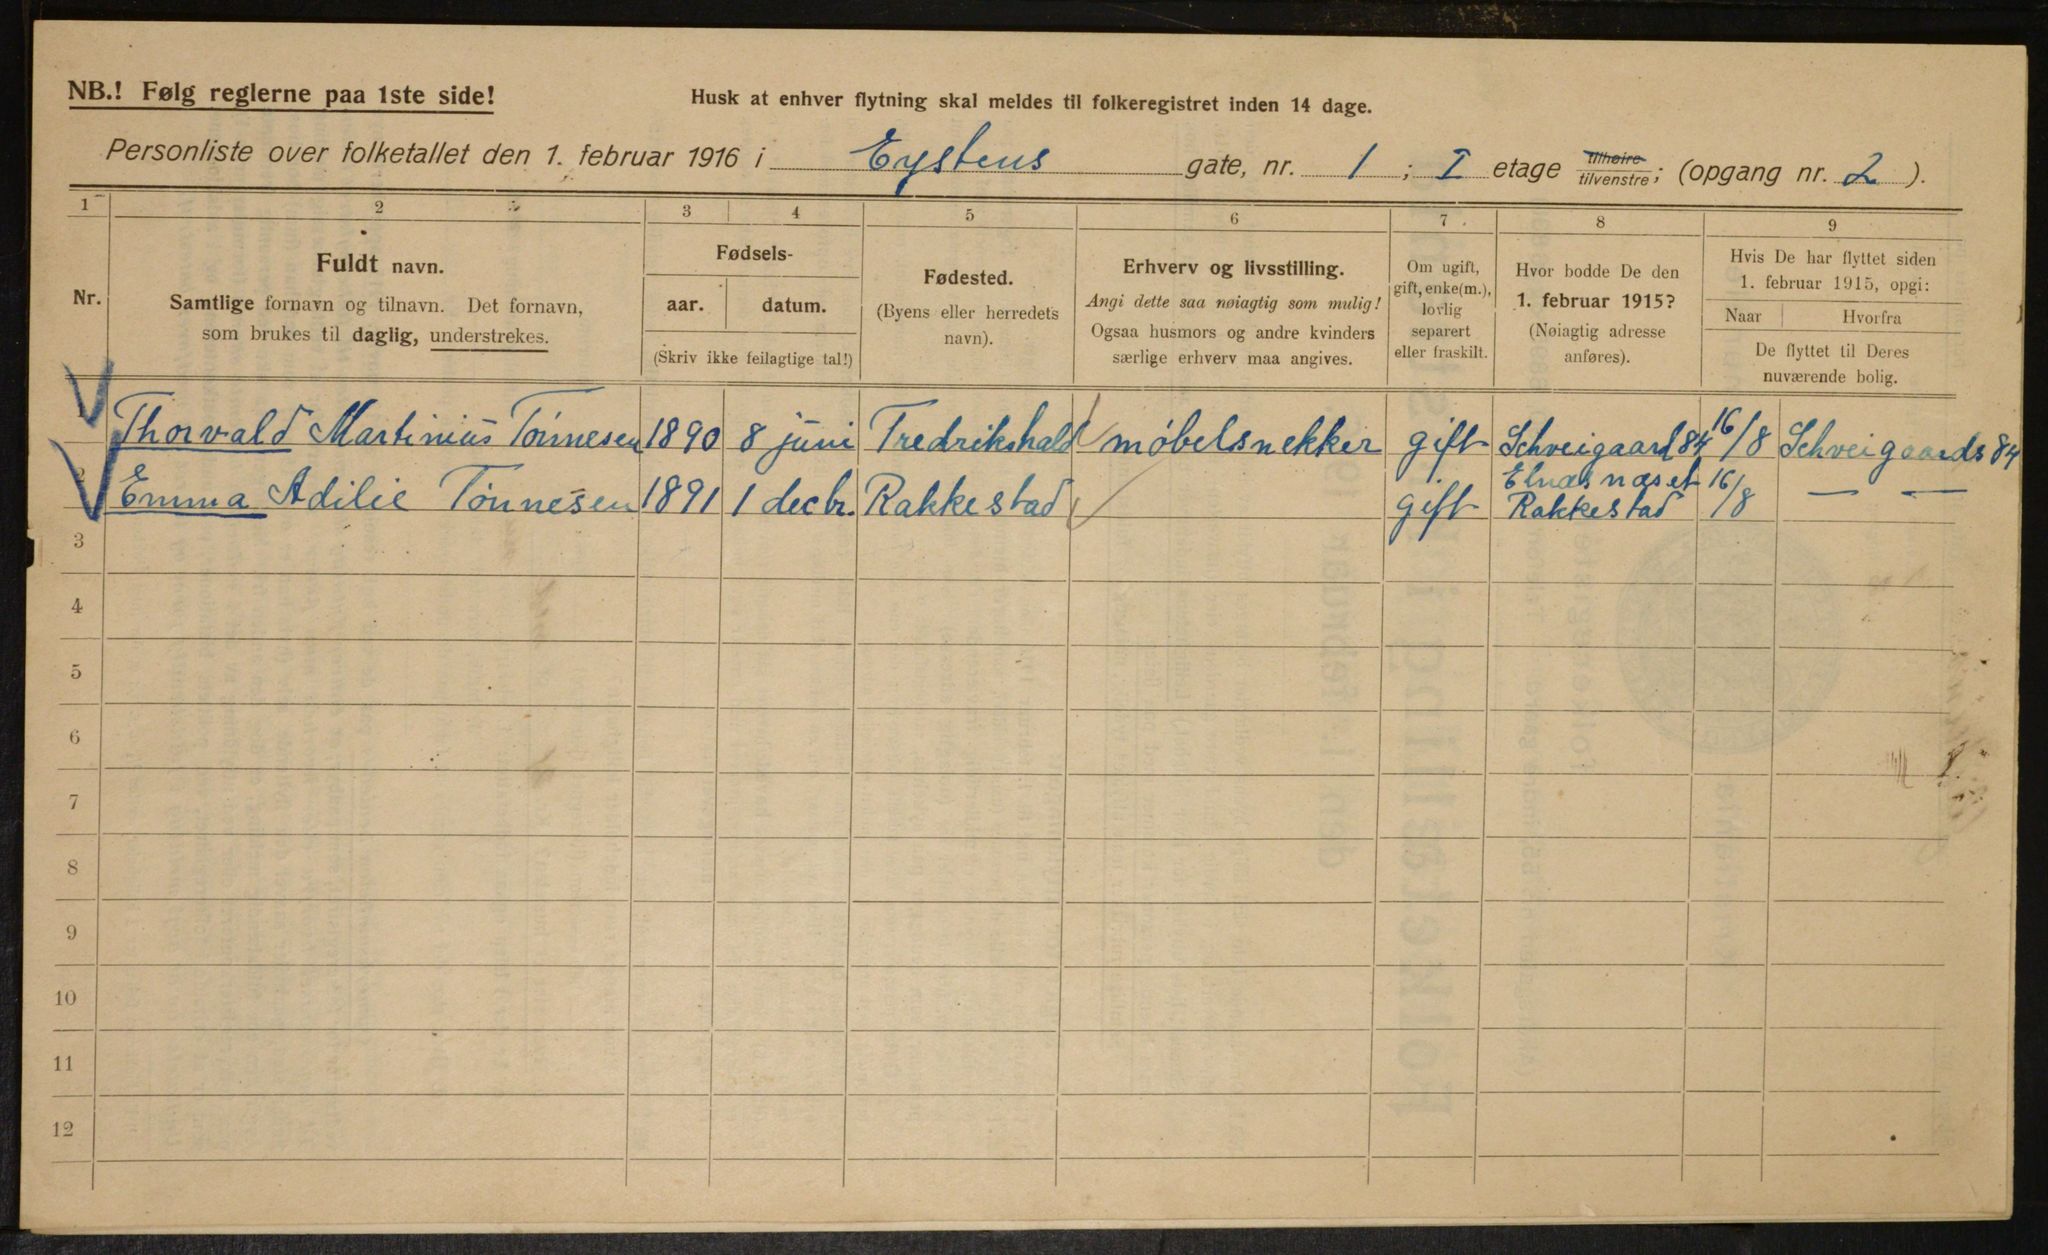 NB.! Følg reglerne paa 1ste side!
Husk at enhver flytning skal meldes til folkeregistret inden 14 dage.
Personliste over folketallet den 1. februar 1916 i Eystens gate, nr. 1 ; I etage tilhøire / tilvenstre ; (opgang nr. 2 ).
1 2 3 4 5 6 7 8 9
Nr.
Fuldt navn.
Samtlige fornavn og tilnavn. Det fornavn,
som brukes til daglig, understrekes.
Fødsels-
aar. datum.
(Skriv ikke feilagtige tal!)
Fødested.
(Byens eller herredets
navn).
Erhverv og livsstilling.
Angi dette saa nøiagtig som mulig!
Ogsaa husmors og andre kvinders
særlige erhverv maa angives.
Om ugift,
gift, enke(m.),
lovlig
separert
eller fraskilt.
Hvor bodde De den
1. februar 1915?
(Nøiagtig adresse
anføres).
Hvis De har flyttet siden
1. februar 1915, opgi:
Naar Hvorfra
De flyttet til Deres
nuværende bolig.
Thorvald Martinius Tønnesen 1890 8 juni Fredrikshald møbelsnekker gift Schveigaard 84 16/8 Schveigaards 84
2 Emma Adilie Tønnesen 1891 1 decbr. Rakkestad gift Rakkestad 16/8 — —
3
4
5
6
7
8
9
10
11
12